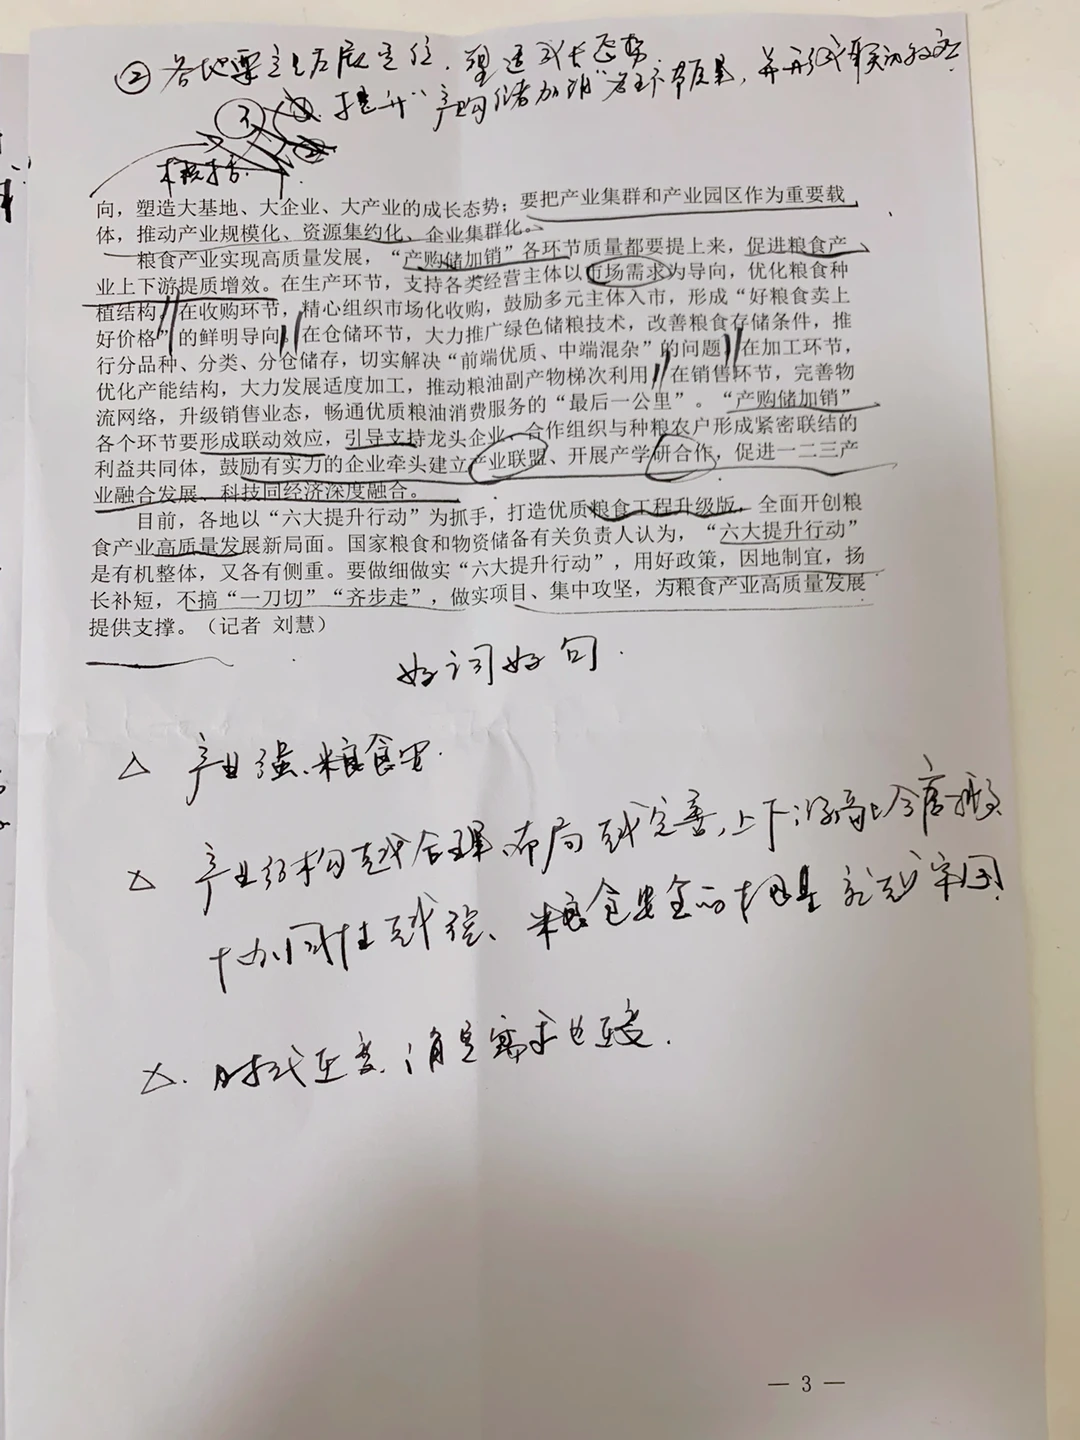 ②各地要立足发展定位,塑造成长态势
③提升“产购储加销”各环节质量,并形成联动效应
向,塑造大基地、大企业、大产业的成长态势;要把产业集群和产业园区作为重要载
体,推动产业规模化、资源集约化、企业集群化。
粮食产业实现高质量发展,“产购储加销”各环节质量都要提上来,促进粮食产
业上下游提质增效。在生产环节,支持各类经营主体以市场需求为导向,优化粮食种
植结构。在收购环节,精心组织市场化收购,鼓励多元主体入市,形成“好粮食卖上
好价格”的鲜明导向。在仓储环节,大力推广绿色储粮技术,改善粮食存储条件,推
行分品种、分类、分仓储存,切实解决“前端优质、中端混杂”的问题。在加工环节,
优化产能结构,大力发展适度加工,推动粮油副产物梯次利用。在销售环节,完善物
流网络,升级销售业态,畅通优质粮油消费服务的“最后一公里”。“产购储加销”
各个环节要形成联动效应,引导支持龙头企业、合作组织与种粮农户形成紧密联结的
利益共同体,鼓励有实力的企业牵头建立产业联盟、开展产学研合作,促进一二三产
业融合发展、科技同经济深度融合。
目前,各地以“六大提升行动”为抓手,打造优质粮食工程升级版,全面开创粮
食产业高质量发展新局面。国家粮食和物资储备有关负责人认为,“六大提升行动”
是有机整体,又各有侧重。要做细做实“六大提升行动”,用好政策,因地制宜,扬
长补短,不搞“一刀切”“齐步走”,做实项目、集中攻坚,为粮食产业高质量发展
提供支撑。(记者 刘慧)
好词好句.
△ 产业强、粮食安.
△ 产业结构越合理、布局越完善,上下游
协同性越强、粮食安全的根基就越牢固
△. 时代在变,消费需求也在变.
— 3 —